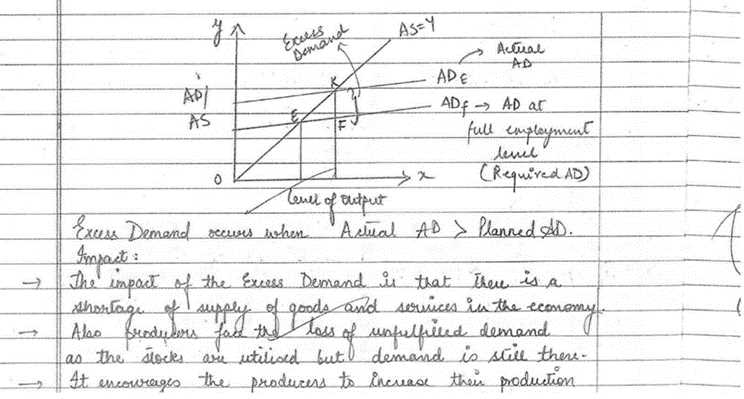 y
Excess
Demand
AS=Y
Actual
AD
K
ADE
AD/
AS
E
F
ADF → AD at
full employment
level
(Required AD)
O
x
level of output
Excess Demand occurs when Actual AD > Planned AD.
Impact :
→ The impact of the Excess Demand is that there is a
shortage of supply of goods and services in the economy.
→ Also producers face the loss of unfulfilled demand
as the stocks are utilised but demand is still there.
→ It encourages the producers to increase their production